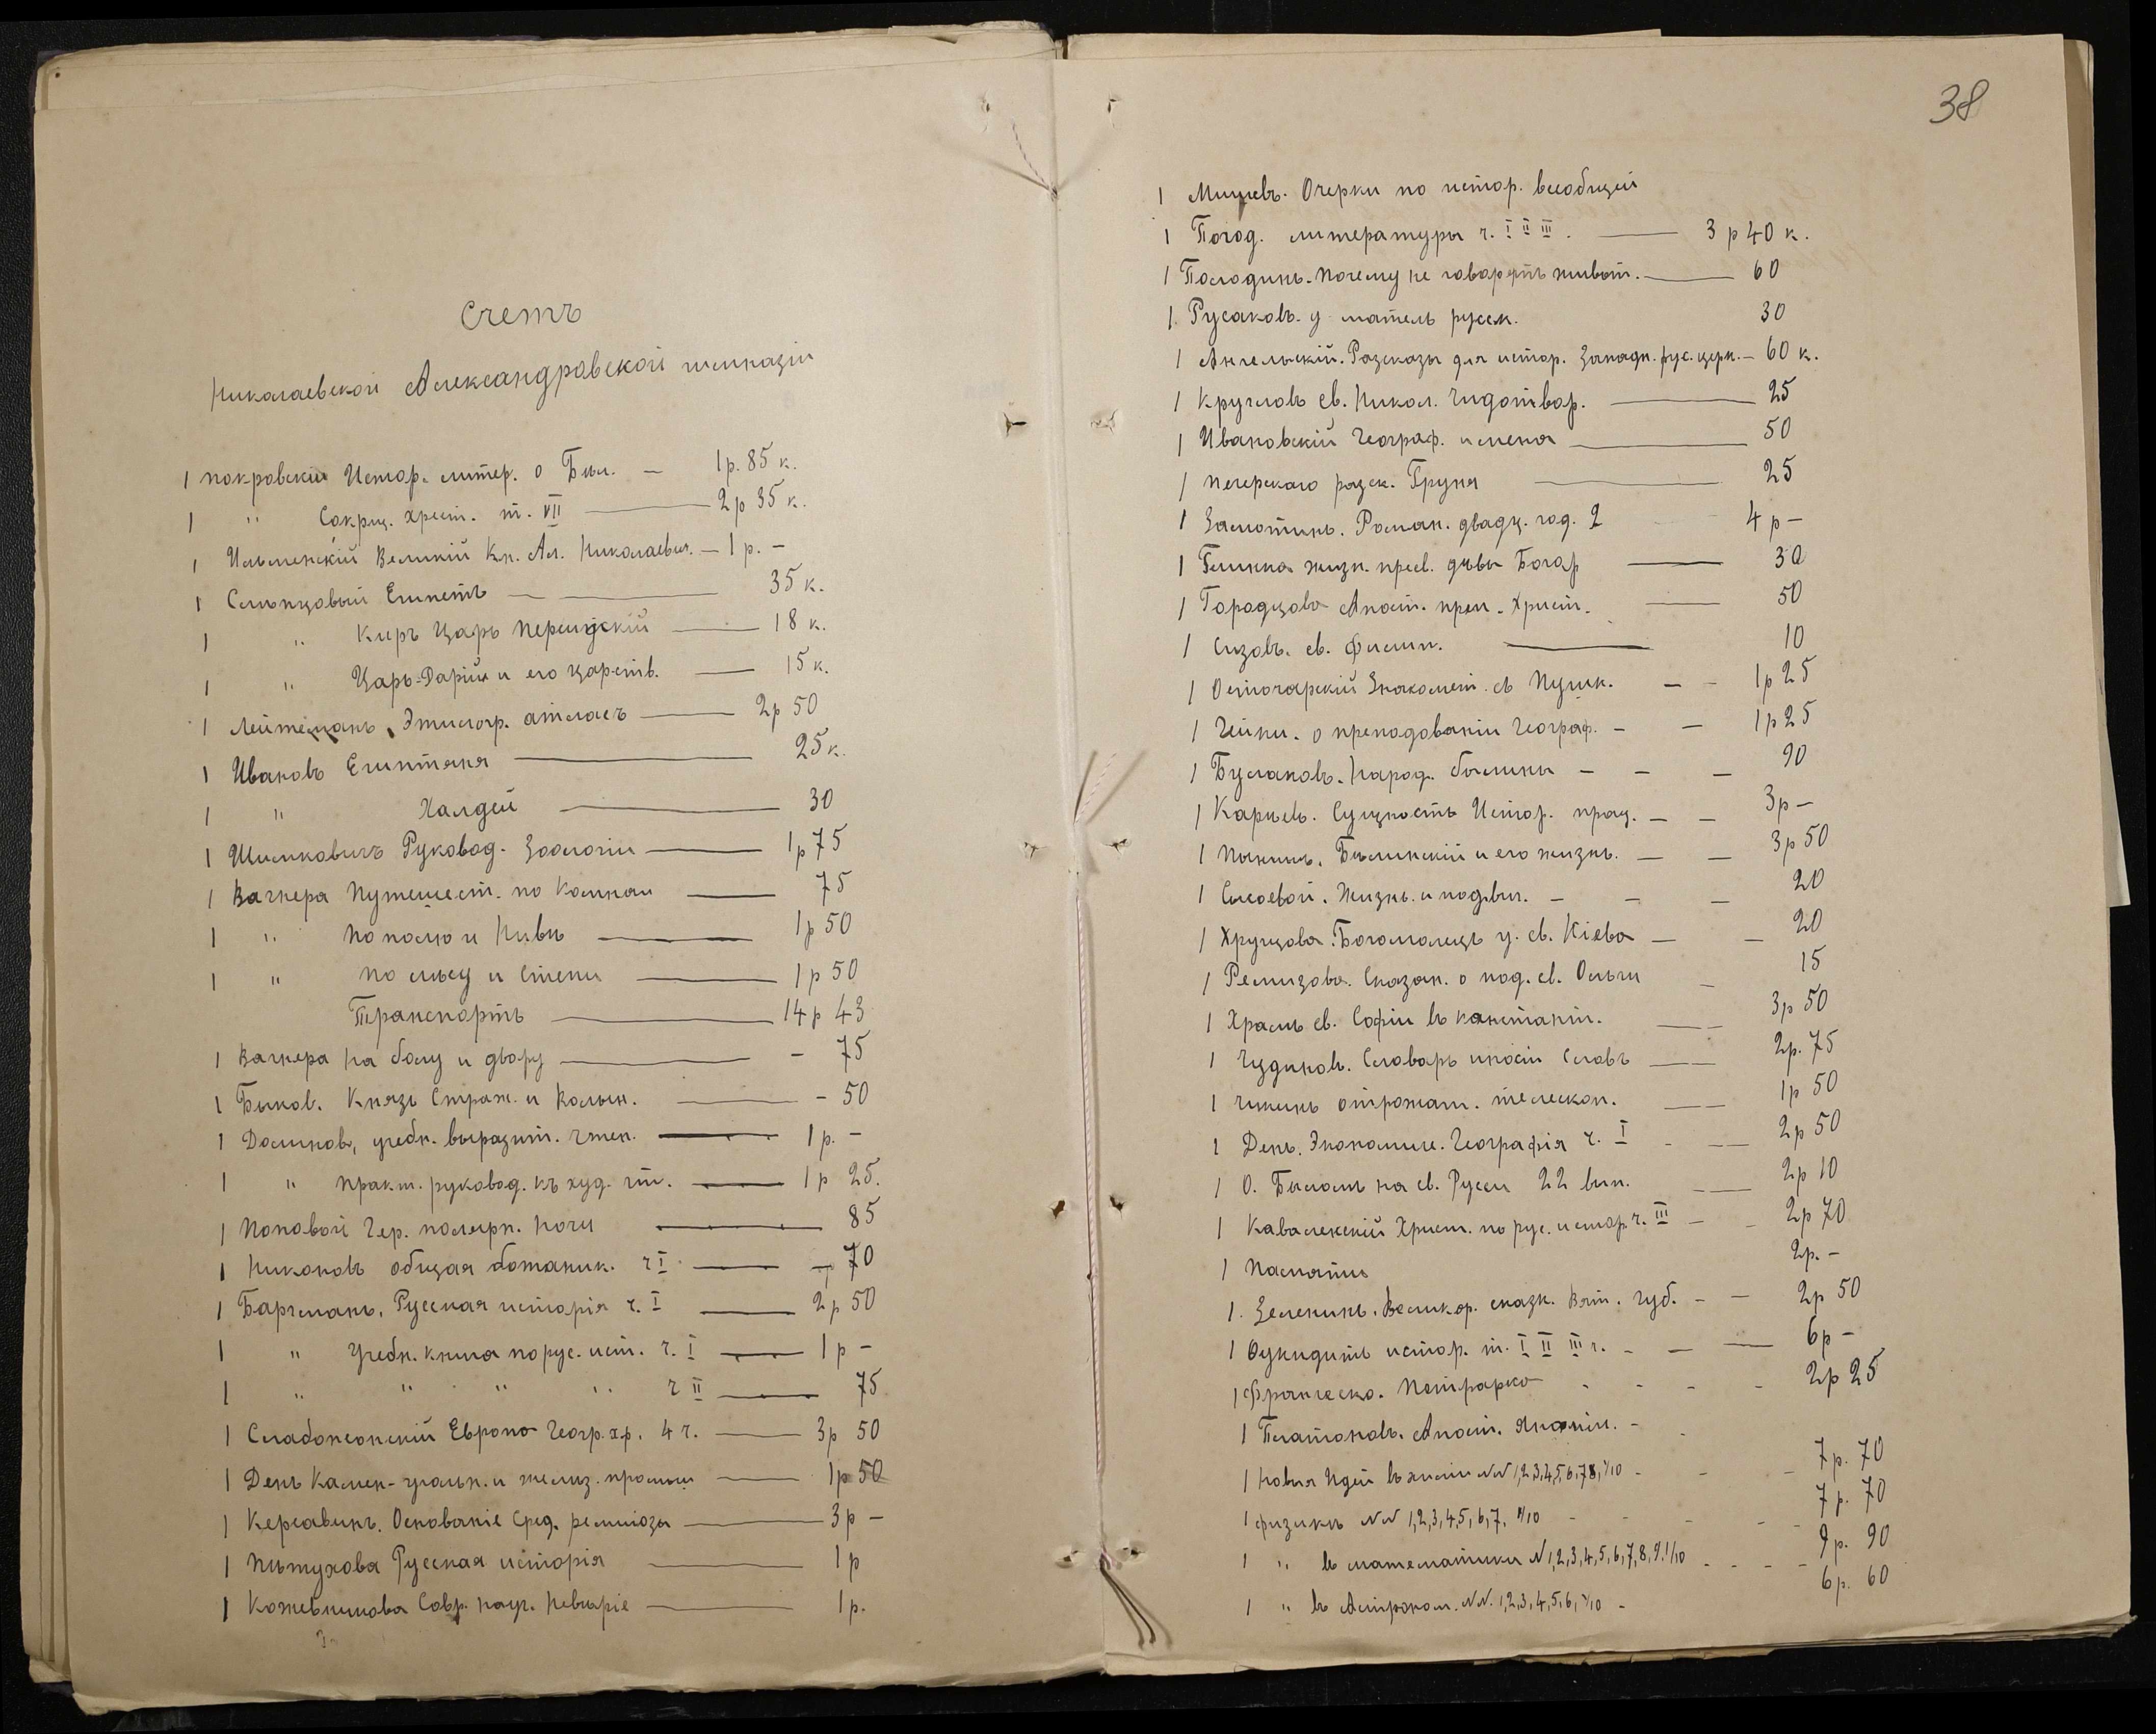 Счетъ
Николаевской Александровской гимназіи
1 Покровскій Истор. литер. о Был. — 1 р. 85 к.
1 " Сокращ. хрест. т. VII — 2 р 35 к.
1 Ильменскій Великій Кн. Ал. Николаевич. — 1 р. –
1 Слѣпцовый Египетъ — 35 к.
1 " Киръ Царь Персидскій — 18 к.
1 " Царь-Дарій и его царств. — 15 к.
1 Лейтеманъ, Этнлогр. атласъ — 2 р 50
1 Ивановъ Египтяне — 25 к.
1 " Халдеи — 30
1 Шимковичъ Руковод. Зоологіи — 1 р 75
1 Вагнера Путешест. по Камнямъ — 75
1 " По полю и Нивѣ — 1 р 50
1 " по лѣсу и степи — 1 р 50
Транспортъ — 14 р 43
1 Вагнера На саду и двору — - 75
1 Быков. Князь Страж. и Волын. — - 50
1 Долинов, учебн. выразит. чтен. — 1 р. –
1 " практ. руковод. къ худ. чт. — 1 р 25.
1 Поповой Гер. полярн. ночи — 85
1 Никоновъ общая ботаник. ч I — 70
1 Баргманъ. Русская исторія ч. I — 2 р 50
1 " Учебн. книга по рус. ист. ч. I — 1 р –
1 " " " " ч II — 75
1 Слабожанскій Европа Геогр. хр. 4 ч. — 3 р 50
1 День Камен-угольн. и желѣз. промыш — 1 р 50
1 Карсавинъ. Основаніе Сред. религіозн — 3 р –
1 Пѣтухова Русская исторія — 1 р
1 Кожевникова Совр. науч. невѣріе — 1 р.
38
1 Мишевъ. Очерки по истор. всеобщей
1 Погод. литературы ч. I II III. — 3 р 40 к.
1 Погодинъ. Почему не говорятъ живот. — 60
1. Русаковъ. у матель русск. 30
1 Ангельскій. Разсказы для истор. Западн. рус. церк. – 60 к.
1 Кругловъ св. Никол. Чудотвор. — 25
1 Ивановскій Географ. имена — 50
1 Печерскаго разск. Груня — 25
1 Замотинъ. Роман. двадц. год. 2 4 р –
1 Глинка жизн. пресв. дѣвы Богор — 30
1 Городцова Апост. прем. Христ. — 50
1 Сизовъ. св. Филип. — 10
1 Острогорскій Знакомст. съ Пушк. – – 1 р 25
1 Гейки. о преподаваніи географ. – – 1 р 25
1 Буслаковъ. Народ. былины – – – 90
1 Карѣевъ. Сущность Истор. проц. – – 3 р –
1 Пыпинъ. Бѣлинскій и его жизнь. – – 3 р 50
1 Сысоевой. Жизнь и подвиг. – – – 20
1 Хрущова. Богомолецъ у св. Кіева – – 20
1 Ремизова. Сказан. о под. св. Ольги – 15
1 Храмъ св. Софіи въ константи. — 3 р 50
1 Чудинов. Словарь иност Словъ — 2 р. 75
1 Чикинъ отражат. телескоп. — 1 р 50
1 День. Экономич. Географія ч. I – — 2 р 50
1 О. Быломъ на св. Руси 22 вып. — 2 р 10
1 Ковалевскій Христ. по рус. истор. ч. III – – 2 р 70
1 Памяти 2 р. –
1. Зеленинъ. Великор. сказк. Вят. губ. – – 2 р 50
1 Ѳукидитъ истор. т. I II III ч. – – — 6 р –
1 Франческо. Петрарка - - - - 2 р 25
1 Платоновъ. Апост. Японіи. –
1 Новыя Идеи въ химіи NN 1,2,3,4,5,6,7,8, 1/10 – - – 7 р. 70
1 физикѣ NN 1,2,3,4,5,6,7, 1/10 - - - – – 7 р. 70
1 " въ математики N 1,2,3,4,5,6,7,8,9, 1/10 - - - – 9 р. 90
1 " въ Астроном. NN. 1,2,3,4,5,6, 1/10 – 6 р. 60